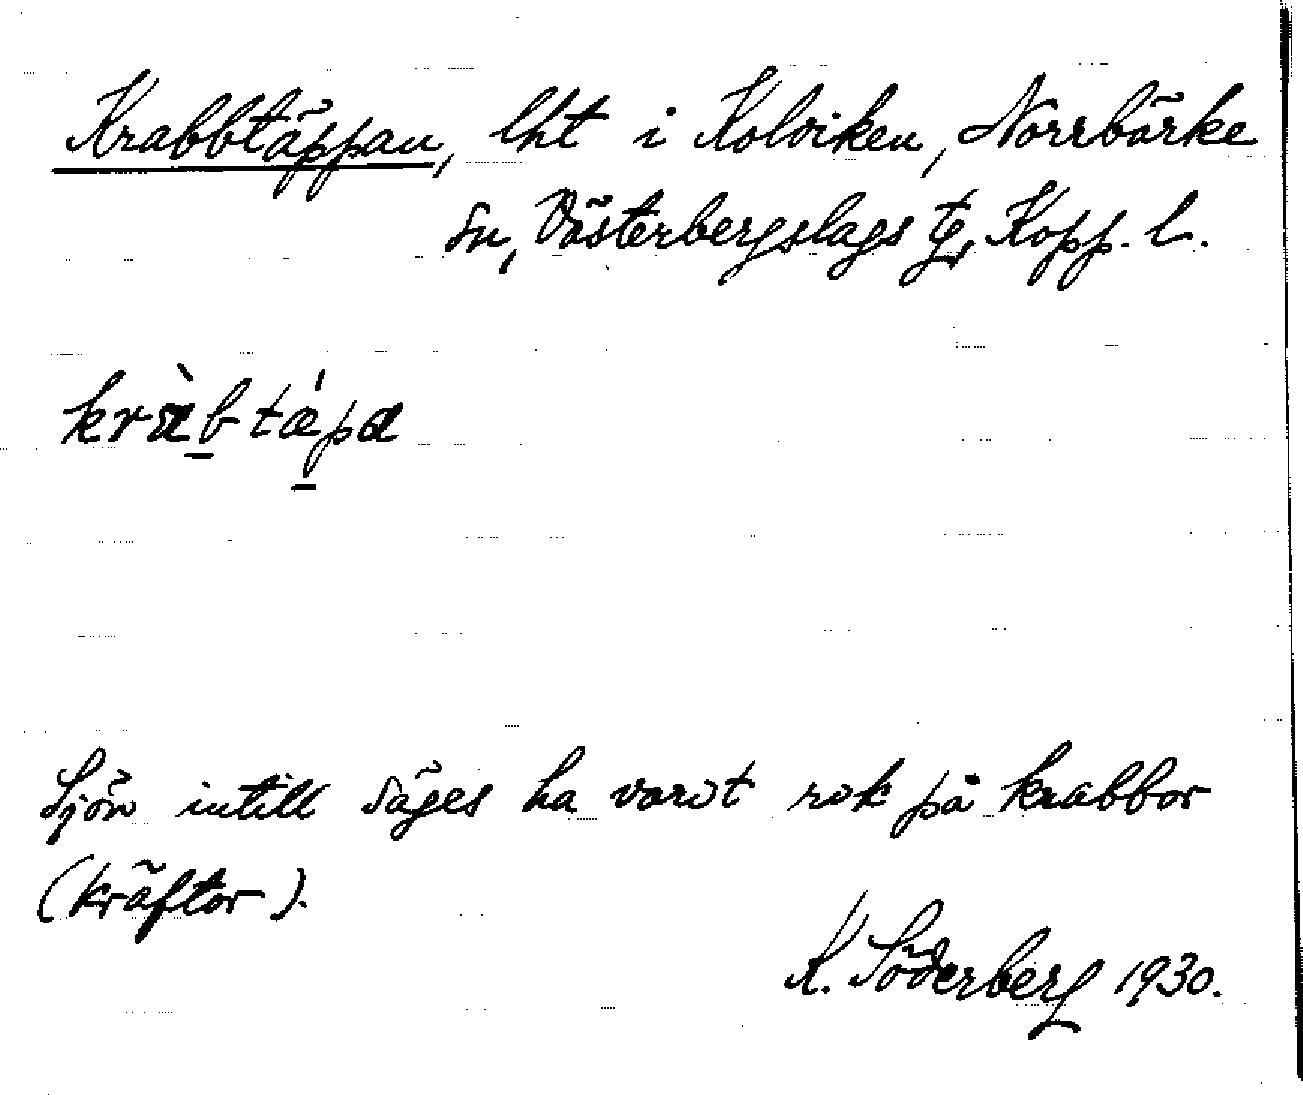 Krabbtäppan, lht i Kolviken, Norrbärke
sn, Västerbergslags tg, Kopp. l.
kràb̲tǽp̲a
Sjön intill säges ha varit rik på krabbor
(kräftor).
K. Söderberg 1930.